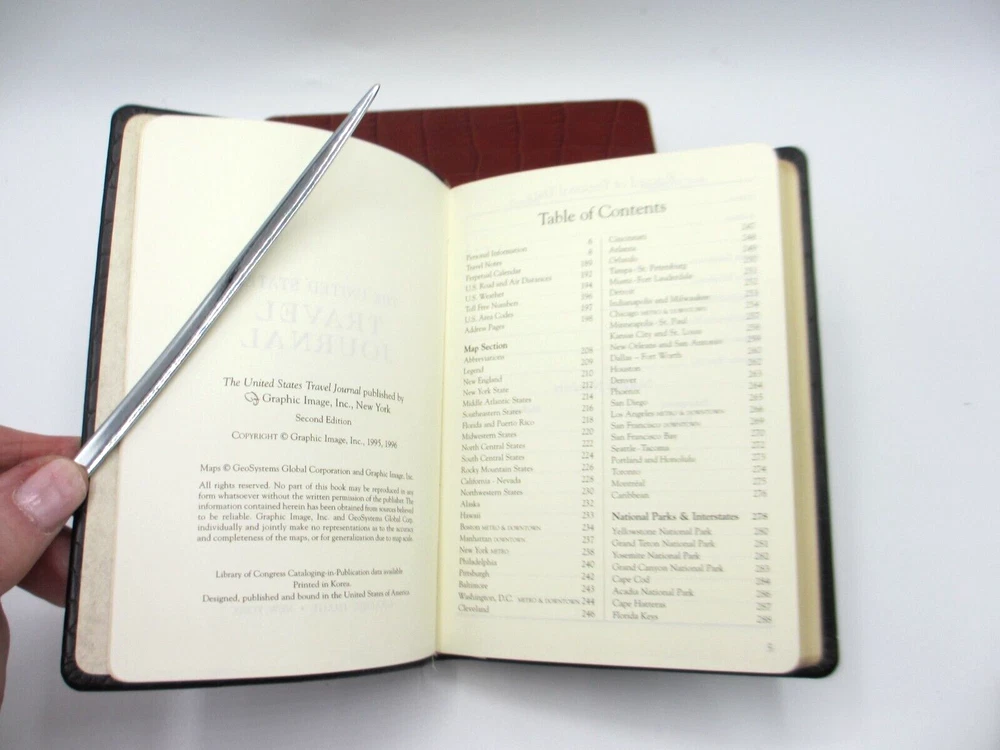 The United States Travel Journal published by
Graphic Image, Inc., New York
Second Edition
COPYRIGHT © Graphic Image, Inc., 1995, 1996
Maps © GeoSystems Global Corporation and Graphic Image, Inc.
All rights reserved. No part of this book may be reproduced in any
form whatsoever without the written permission of the publisher. The
information contained herein has been obtained from sources believed
to be reliable. Graphic Image, Inc. and GeoSystems Global Corp.
individually and jointly make no representations as to the accuracy
and completeness of the maps, or for generalization due to map scale.
Library of Congress Cataloging-in-Publication data available
Printed in Korea.
Designed, published and bound in the United States of America
Table of Contents
Personal Information 6
Travel Notes 8
Perpetual Calendar 189
U.S. Road and Air Distances 192
U.S. Weather 194
Toll Free Numbers 196
U.S. Area Codes 197
Address Pages 198
Map Section
Abbreviations 208
Legend 209
New England 210
New York State 212
Middle Atlantic States 214
Southeastern States 216
Florida and Puerto Rico 218
Midwestern States 220
North Central States 222
South Central States 224
Rocky Mountain States 226
California - Nevada 228
Northwestern States 230
Alaska 232
Hawaii 233
Boston METRO & DOWNTOWN 234
Manhattan DOWNTOWN 237
New York METRO 238
Philadelphia 240
Pittsburgh 242
Baltimore 243
Washington, D.C. METRO & DOWNTOWN 244
Cleveland 246
Cincinnati 247
Atlanta 248
Orlando 249
Tampa - St. Petersburg 250
Miami - Fort Lauderdale 251
Detroit 252
Indianapolis and Milwaukee 253
Chicago METRO & DOWNTOWN 254
Minneapolis - St. Paul 257
Kansas City and St. Louis 258
New Orleans and San Antonio 259
Dallas - Fort Worth 260
Houston 262
Denver 263
Phoenix 264
San Diego 265
Los Angeles METRO & DOWNTOWN 266
San Francisco DOWNTOWN 269
San Francisco Bay 270
Seattle - Tacoma 272
Portland and Honolulu 273
Toronto 274
Montréal 275
Caribbean 276
National Parks & Interstates 278
Yellowstone National Park 280
Grand Teton National Park 281
Yosemite National Park 282
Grand Canyon National Park 283
Cape Cod 284
Acadia National Park 286
Cape Hatteras 287
Florida Keys 288
5